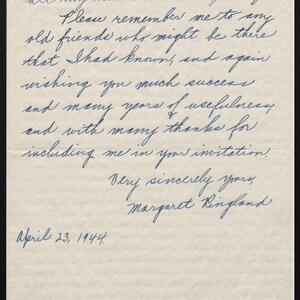 Please remember me to any
old friends who might be there
that I had known, and again
wishing you much success
and many years of usefulness,
and with many thanks for
including me in your invitation.
Very sincerely yours,
Margaret Ringland
April 23, 1944.